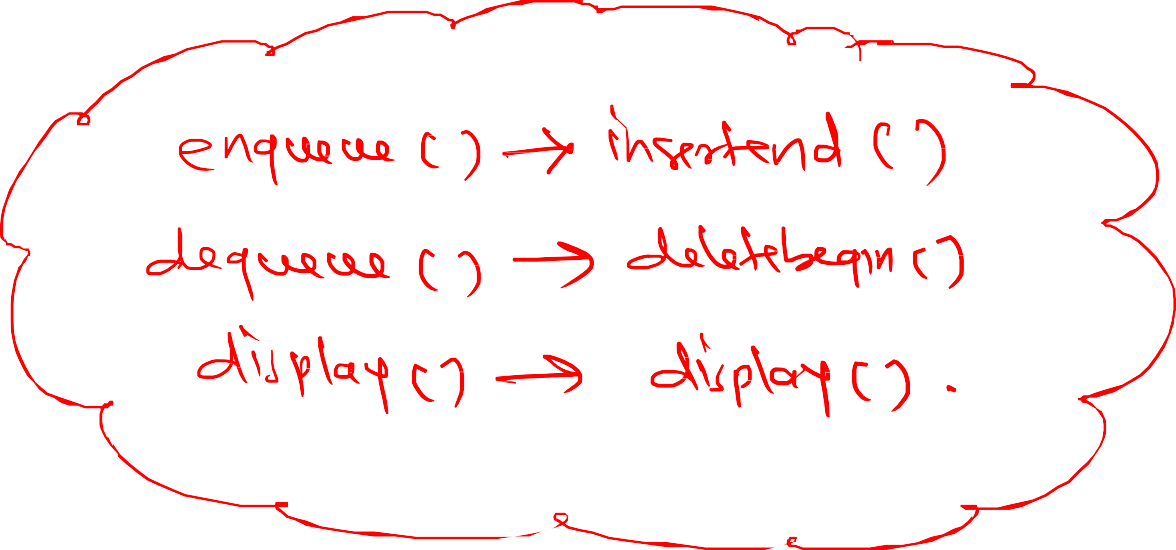 enqueue() → insertend()
dequeue() → deletebegin()
display() → display().